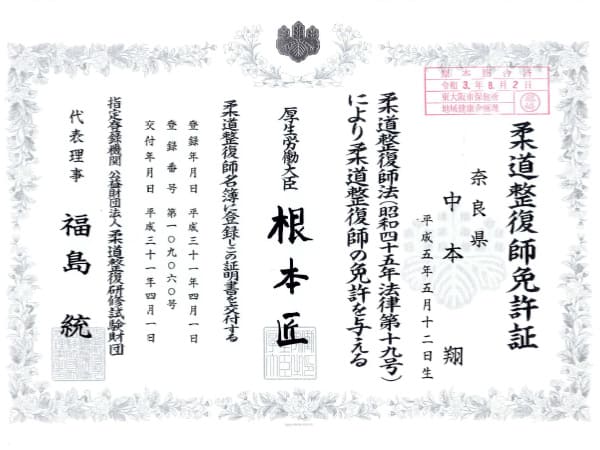 柔道整復師免許証
奈良県
中本 翔
平成五年五月十二日生
柔道整復師法(昭和四十五年法律第十九号)
により柔道整復師の免許を与える
厚生労働大臣 根本匠
柔道整復師名簿に登録しこの証明書を交付する
登録年月日 平成三十一年四月一日
登録番号 第一〇九〇六〇号
交付年月日 平成三十一年四月一日
指定登録機関 公益財団法人 柔道整復研修試験財団
代表理事 福島 統
令和 3.年 8.月 2日
東大阪市保健所